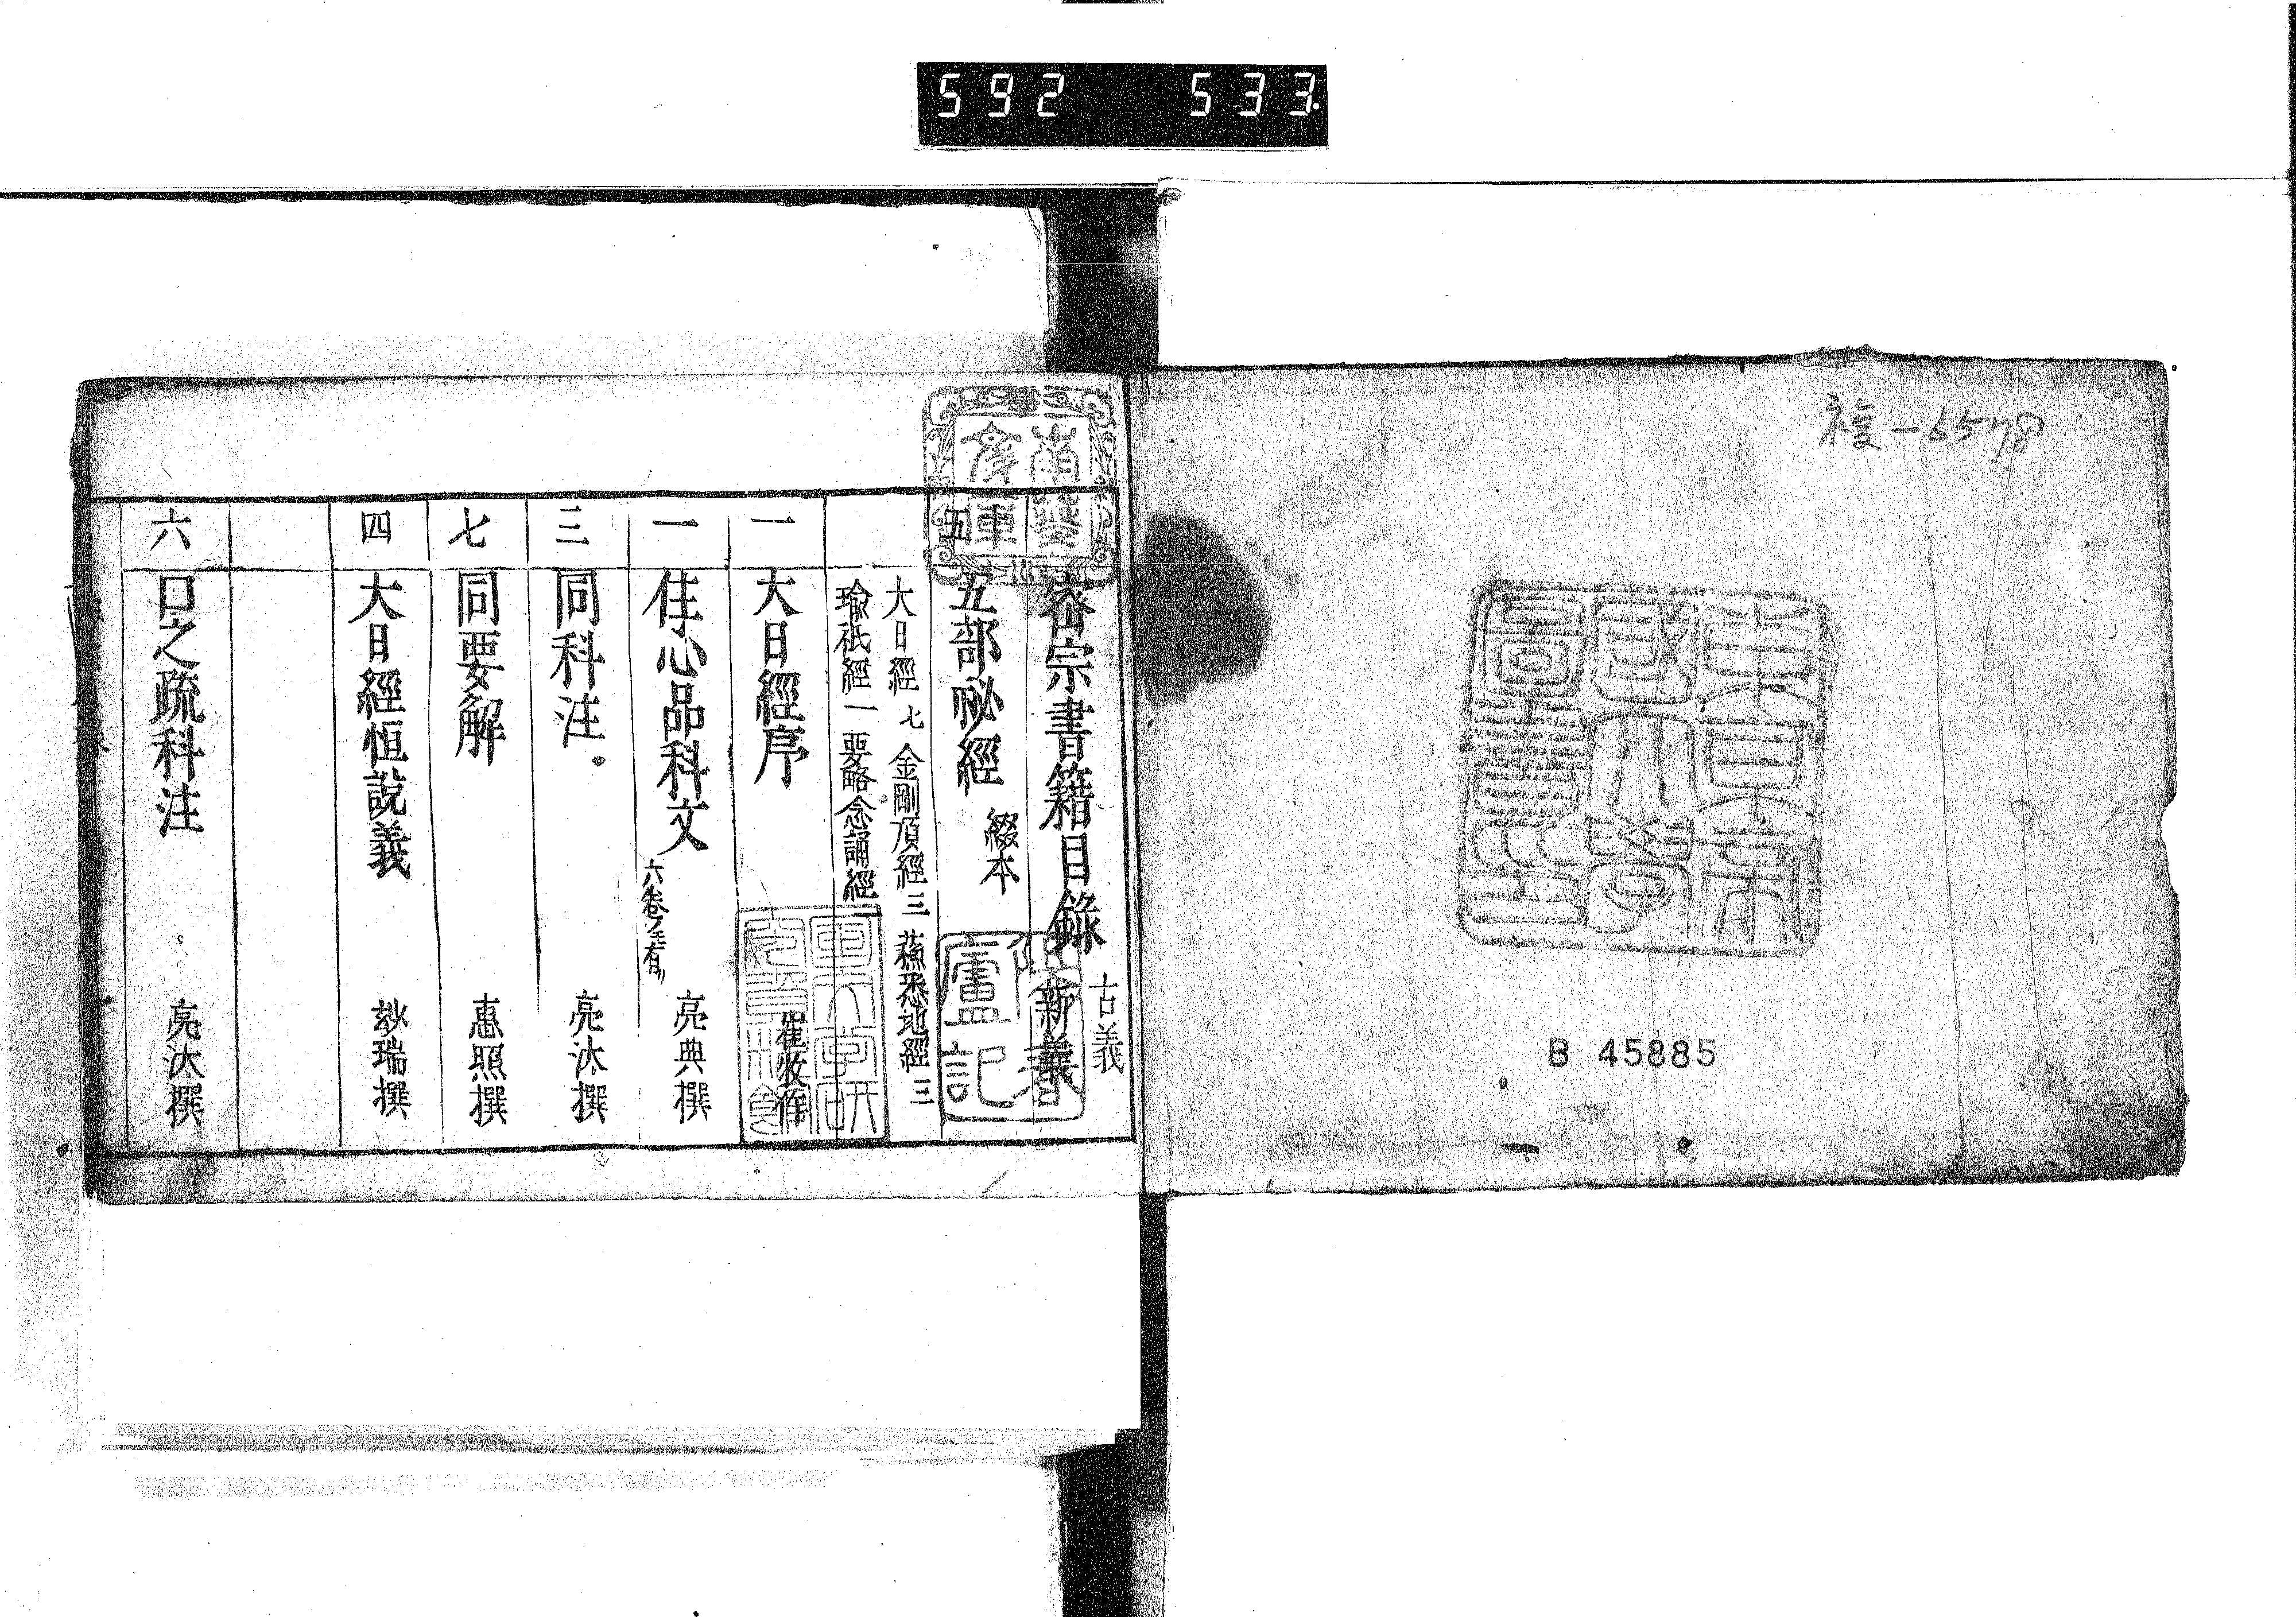 592 533.
複-6578
東京帝國大學圖書印
B 45885
密宗書籍目錄 古義 新義
五 五部祕經 綴本
大日經 七 金剛頂經 三 蘇悉地經 三
瑜祇經 一 要略念誦經 一
一 大日經序 崔牧作
一 住心品科文 六卷 亮典撰
三 同科注 亮汰撰
七 同要解 惠照撰
四 大日經恒説義 玅瑞撰
六 口之疏科注 亮汰撰